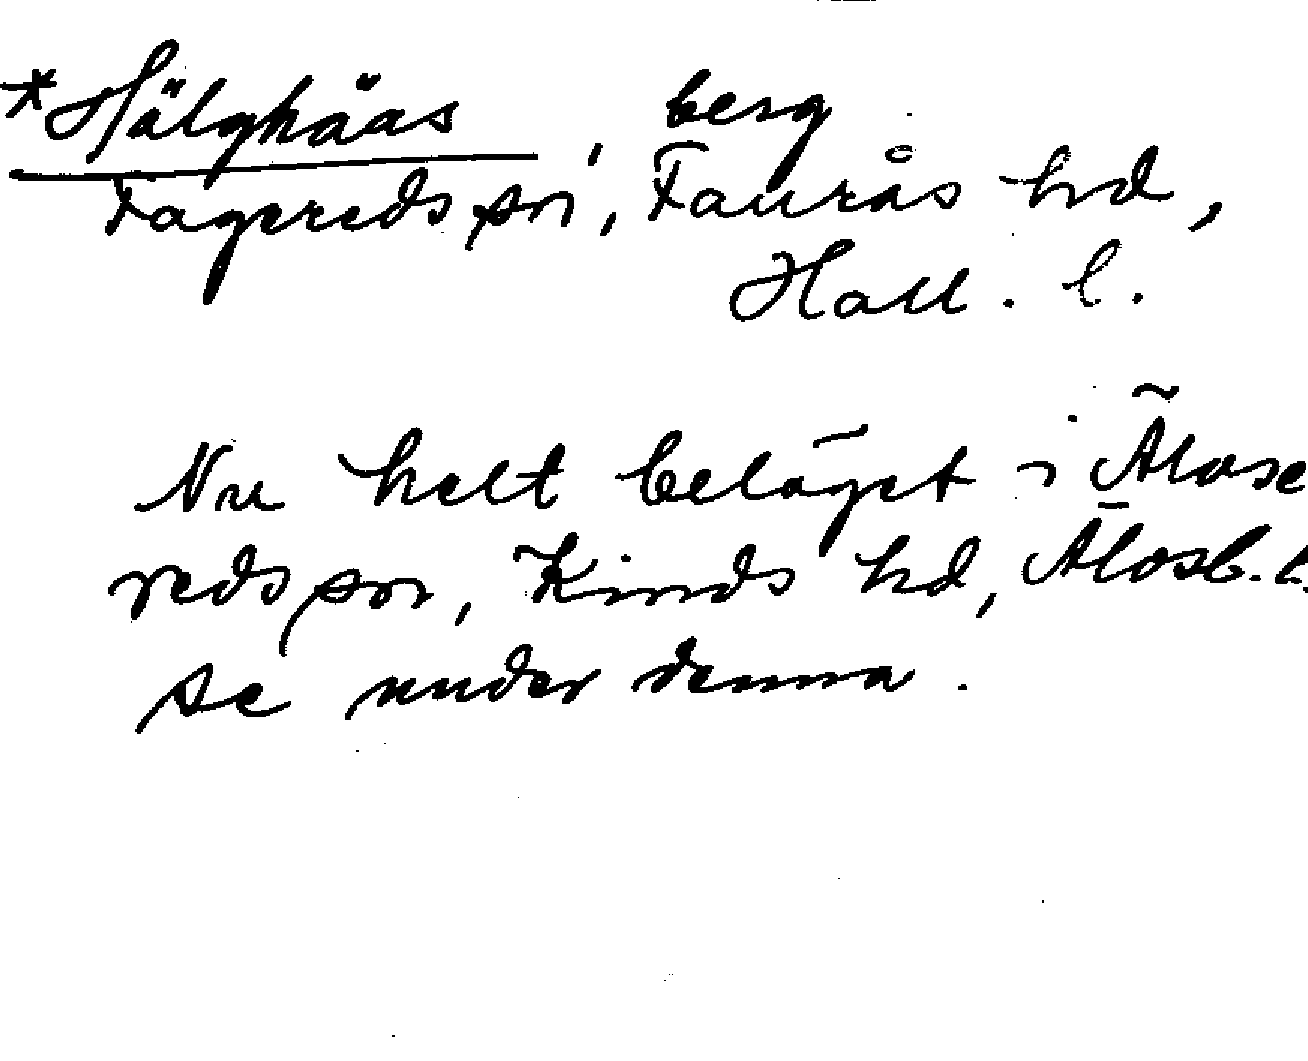 *Hälghäas, berg
Fagereds sn, Faurås hd,
Hall. l.
Nu helt beläget i Älvse
reds sn, Kinds hd, Älvsb. l.
se under denna.